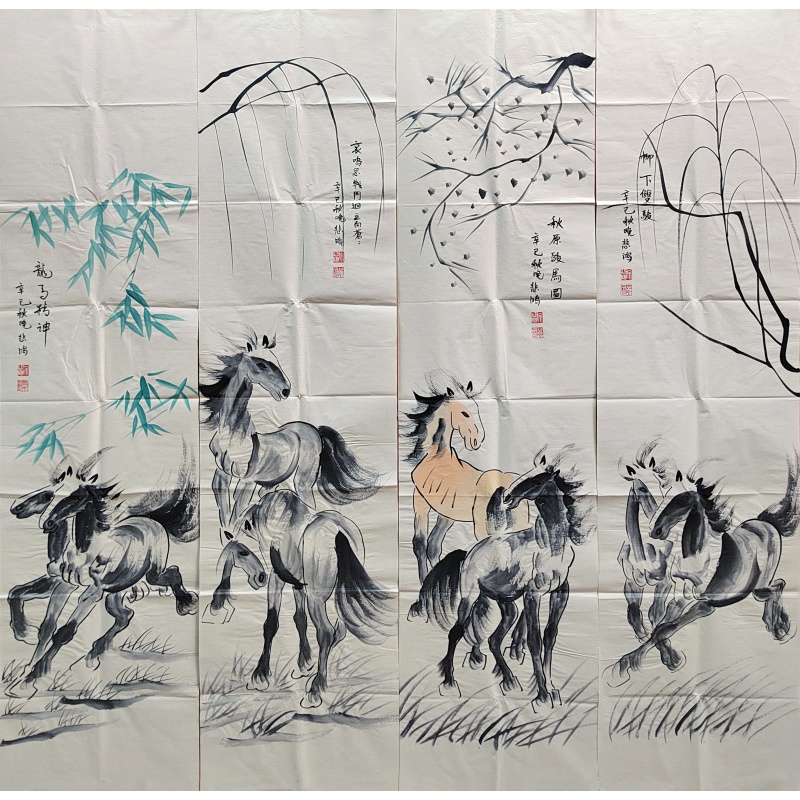 龍馬精神
辛巳秋晚悲鴻
哀鳴思戰鬥迥立向蒼蒼
辛巳秋晚悲鴻
秋原駿馬圖
辛巳秋晚悲鴻
柳下雙駿
辛巳秋晚悲鴻